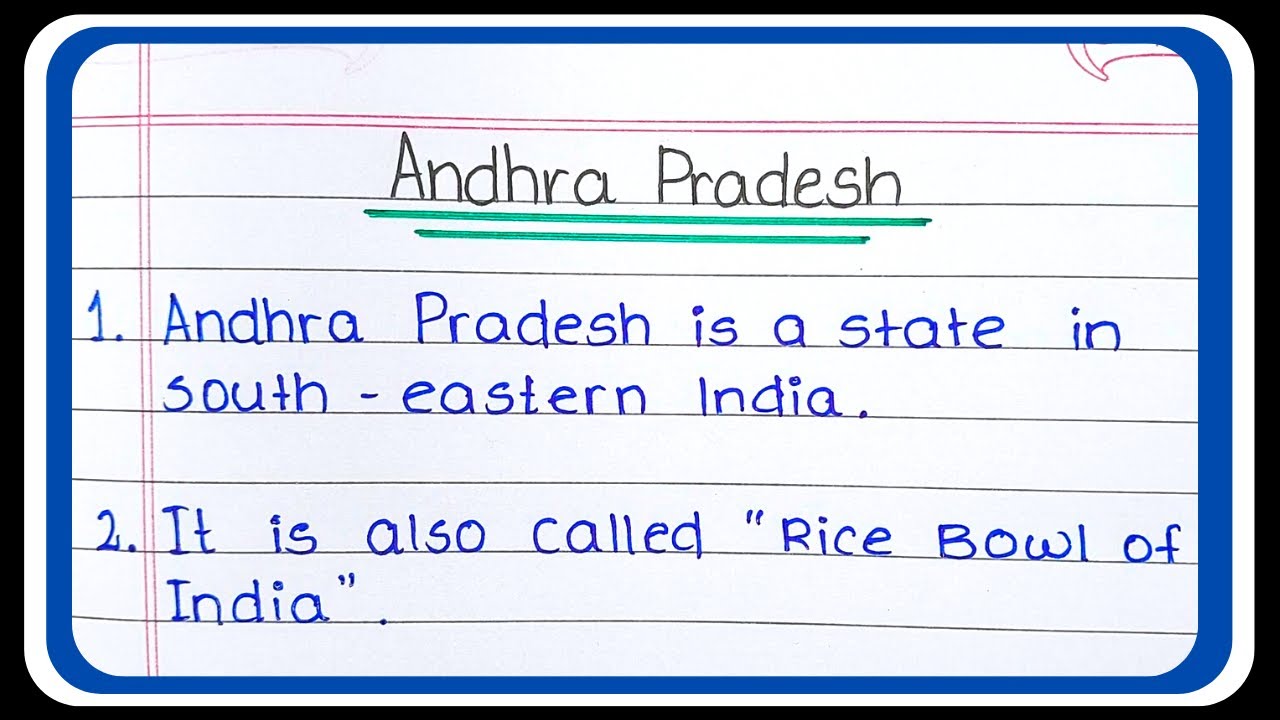 Andhra Pradesh
1. Andhra Pradesh is a state in
south-eastern India.
2. It is also called "Rice Bowl of
India".